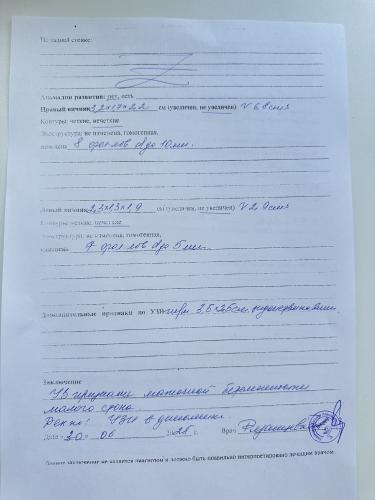 По задней стенке:
Аномалии развития: нет, есть
Правый яичник 3,2×1,9×2,2 см (увеличен, не увеличен) V 6,8 см3
Контуры: четкие, нечеткие
Эхоструктура: не изменена, гомогенная,
8 фол-лов d до 10 мм.
Левый яичник 2,3×1,3×1,9 см (увеличен, не увеличен) V 2,9 см3
Контуры: четкие, нечеткие
Эхоструктура: не изменена, гомогенная,
фол-лов d до 5 мм.
Дополнительные признаки по УЗИ:
Заключение
УЗ признаки маточной беременности
малого срока
Рек-но: УЗИ в динамике.
Дата «30» 06 г. Врач
Данное заключение не является диагнозом и должно быть правильно интерпретировано лечащим врачом.